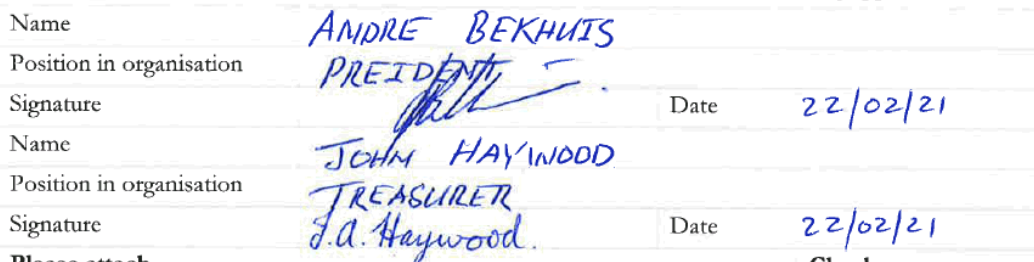 Name ANDRE BEKHUIS
Position in organisation PREIDENT
Signature Date 22/02/21
Name JOHN HAYWOOD
Position in organisation TREASURER
Signature J.A. Haywood. Date 22/02/21
Please attach